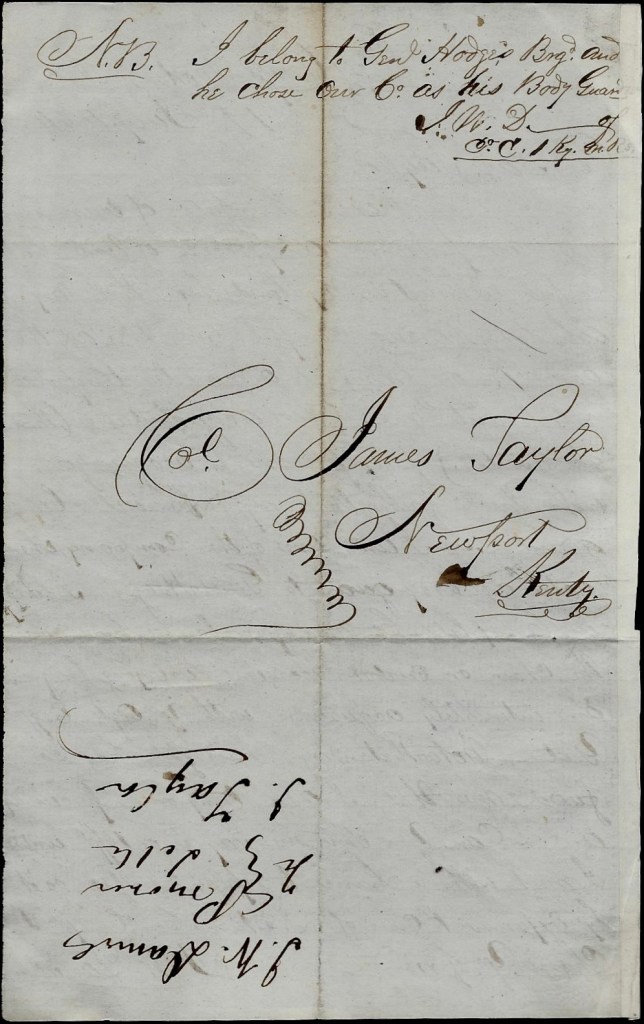 N.B. I belong to Genl Hodge's Brigd. and
he chose our Co. as his Body Guard
J. W. D. of
Co. C. 1 Ky.
Col. James Taylor
Newport
Kenty.
J. W. Daniels
Prisoner
J. Taylor